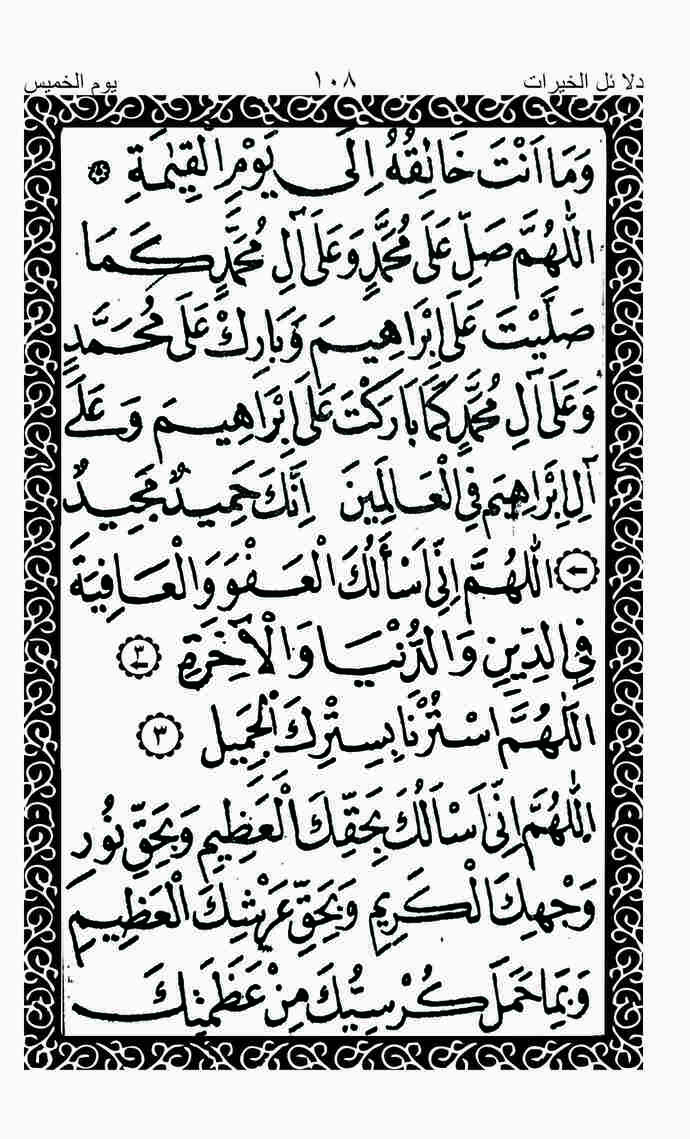 دلائل الخيرات ١٠٨ يوم الخميس
وَمَا اَنْتَ خَالِقُهُ اِلَى يَوْمِ الْقِيٰمَةِ
اَللّٰهُمَّ صَلِّ عَلَى مُحَمَّدٍ وَعَلَى آلِ مُحَمَّدٍ كَمَا
صَلَّيْتَ عَلَى اِبْرَاهِيمَ وَبَارِكْ عَلَى مُحَمَّدٍ
وَعَلَى آلِ مُحَمَّدٍ كَمَا بَارَكْتَ عَلَى اِبْرَاهِيمَ وَعَلَى
آلِ اِبْرَاهِيمَ فِي الْعَالَمِينَ اِنَّكَ حَمِيدٌ مَجِيدٌ
اَللّٰهُمَّ اِنِّي اَسْأَلُكَ الْعَفْوَ وَالْعَافِيَةَ
فِي الدِّينِ وَالدُّنْيَا وَالْاٰخِرَةِ ٣
اَللّٰهُمَّ اسْتُرْنَا بِسِتْرِكَ الْجَمِيلِ ٣
اَللّٰهُمَّ اِنِّي اَسْاَلُكَ بِحَقِّكَ الْعَظِيمِ وَبِحَقِّ نُورِ
وَجْهِكَ الْكَرِيمِ وَبِحَقِّ عَرْشِكَ الْعَظِيمِ
وَبِمَا حَمَلَ كُرْسِيُّكَ مِنْ عَظَمَتِكَ